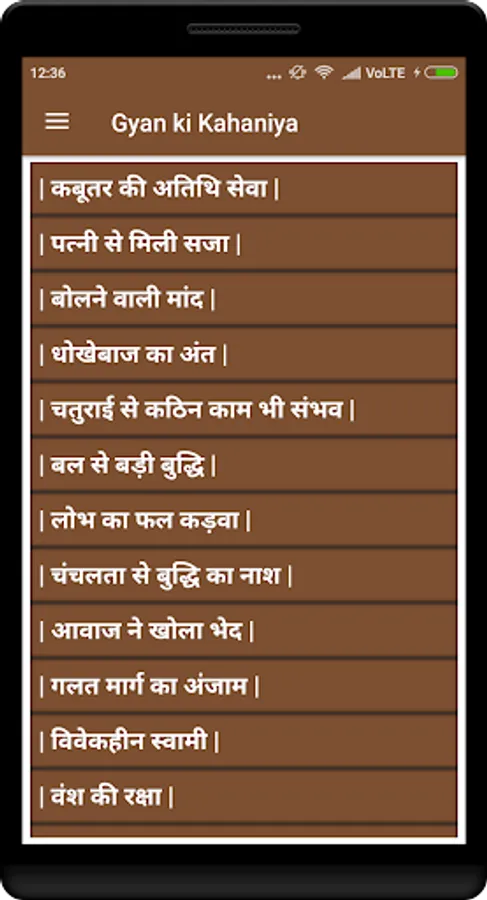 12:36 ... VoLTE
Gyan ki Kahaniya
| कबूतर की अतिथि सेवा |
| पत्नी से मिली सजा |
| बोलने वाली मांद |
| धोखेबाज का अंत |
| चतुराई से कठिन काम भी संभव |
| बल से बड़ी बुद्धि |
| लोभ का फल कड़वा |
| चंचलता से बुद्धि का नाश |
| आवाज ने खोला भेद |
| गलत मार्ग का अंजाम |
| विवेकहीन स्वामी |
| वंश की रक्षा |